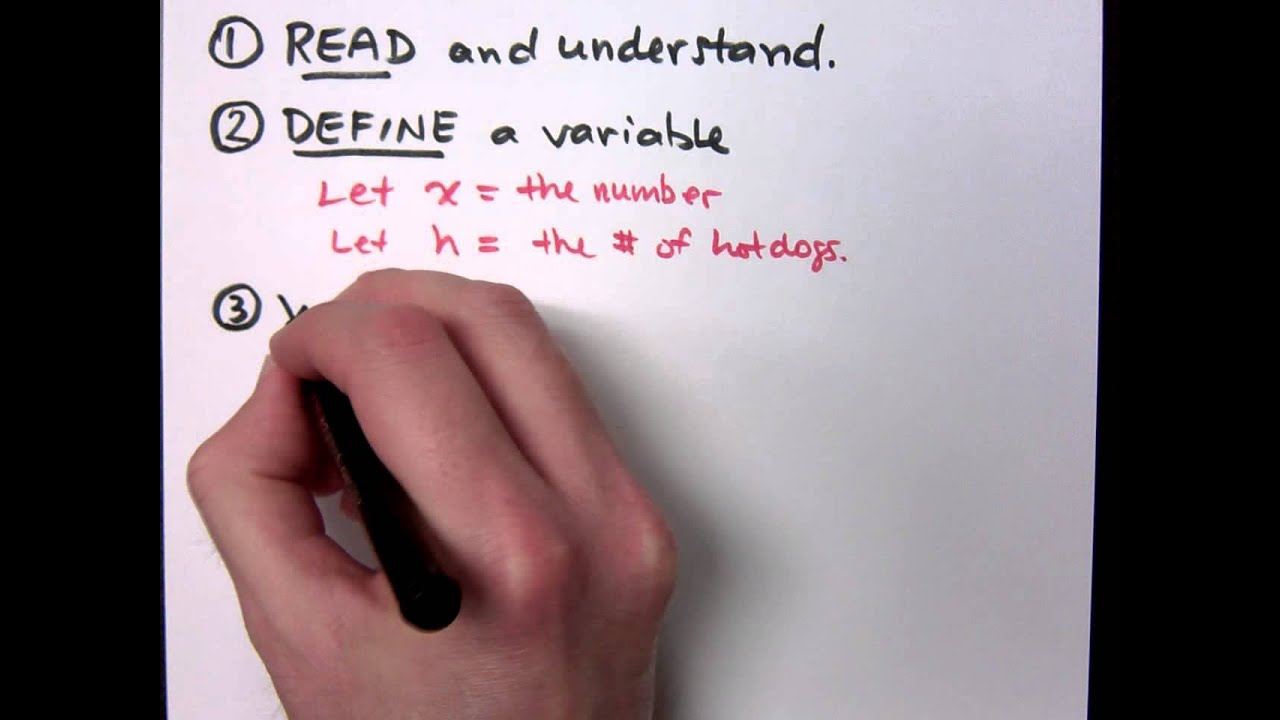 ① READ and understand.
② DEFINE a variable
Let x = the number
Let h = the # of hotdogs.
③